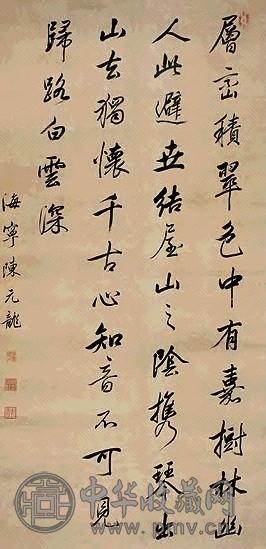 層峦積翠色中有嘉樹林幽
人此避世結屋山之陰携琴出
山去獨懷千古心知音不可見
歸路白雲深
海寧陳元龍
中华收藏网